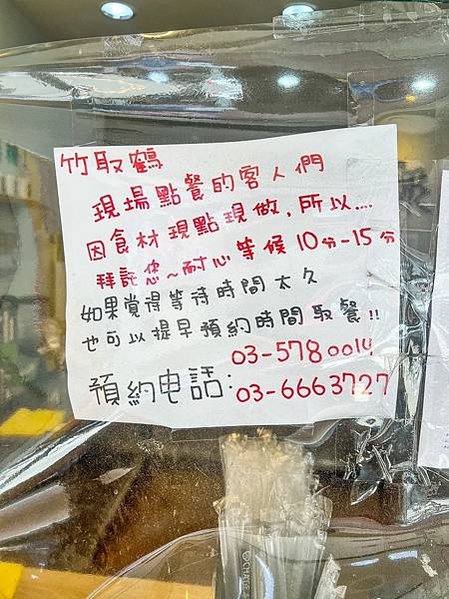 竹取鶴
現場點餐的客人們
因食材現點現做,所以....
拜託您~耐心等候10分-15分
如果覺得等待時間太久
也可以提早預約時間取餐!!
03-5780014
預約电話:03-6663727